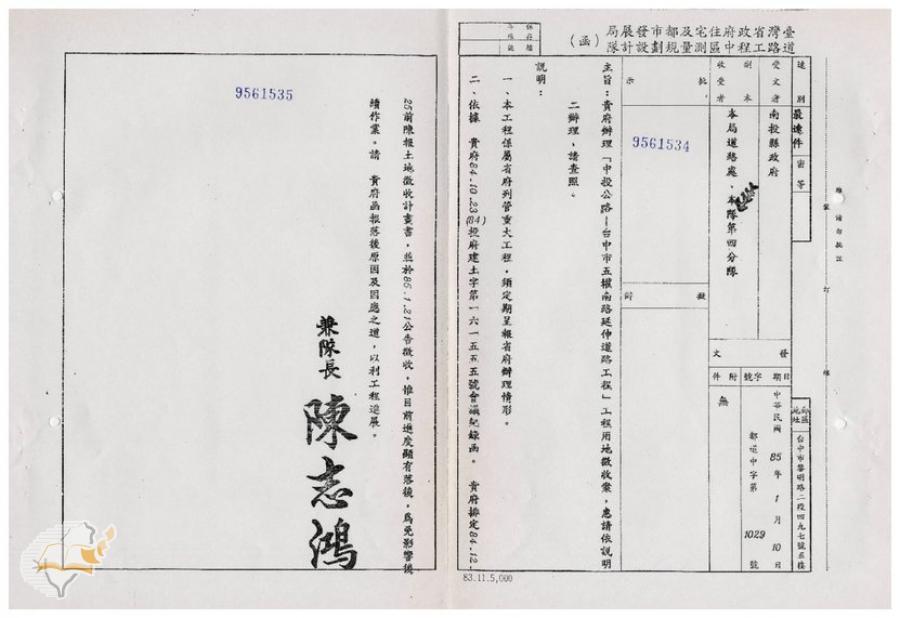 臺灣省政府住宅及都市發展局
道路工程中區測量規劃設計隊
（函）
保存年限
檔號
速別
最速件
密等
受文者
南投縣政府
副本
收受者
本局道路處、本隊第四分隊
批示
9561534
擬辦
發文
日期
中華民國85年1月10日
字號
都道中字第1029號
附件
無
郵區
地址
台中市黎明路二段四九七號五樓
請勿批註
主旨：貴府辦理「中投公路—台中市五權南路延伸道路工程」工程用地徵收案，惠請依說明
二辦理，請查照。
說明：
一、本工程係屬省府列管重大工程，須定期呈報省府辦理情形。
二、依據 貴府84.10.23(84)投府建土字第一六一五五五號會議紀錄函。 貴府排定84.12.
25前陳報土地徵收計畫書，並於85.1.21公告徵收，惟目前進度顯有落後，為免影響後
續作業。請 貴府函報落後原因及因應之道，以利工程進展。
兼隊長 陳志鴻
9561535
83.11.5,000